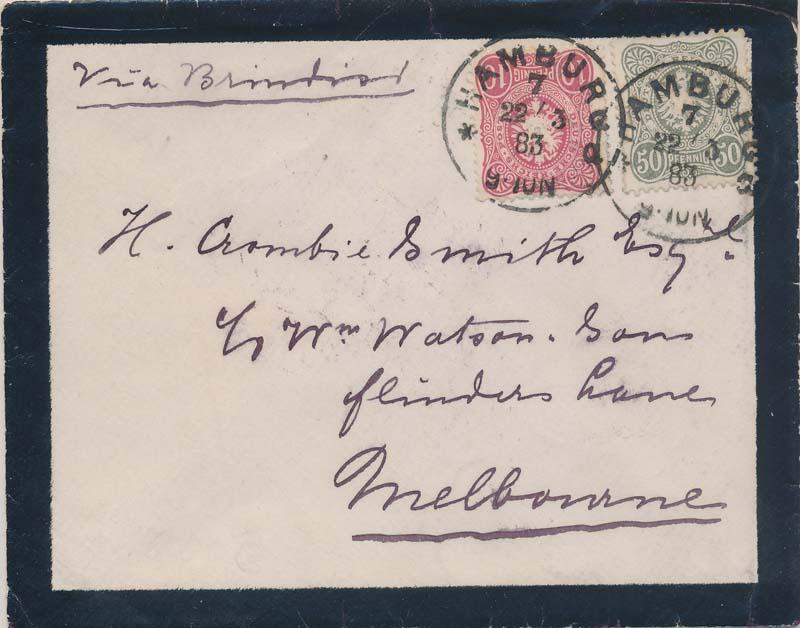 Via Brindisi
10 PFENNIG 10
50 PFENNIG 50
HAMBURG
7
22/3
83
9-10N
HAMBURG
7
22 3
83
9-10N
H. Crombie Smith Esqre.
c/o Wm Watson. Sons
Flinders Lane
Melbourne